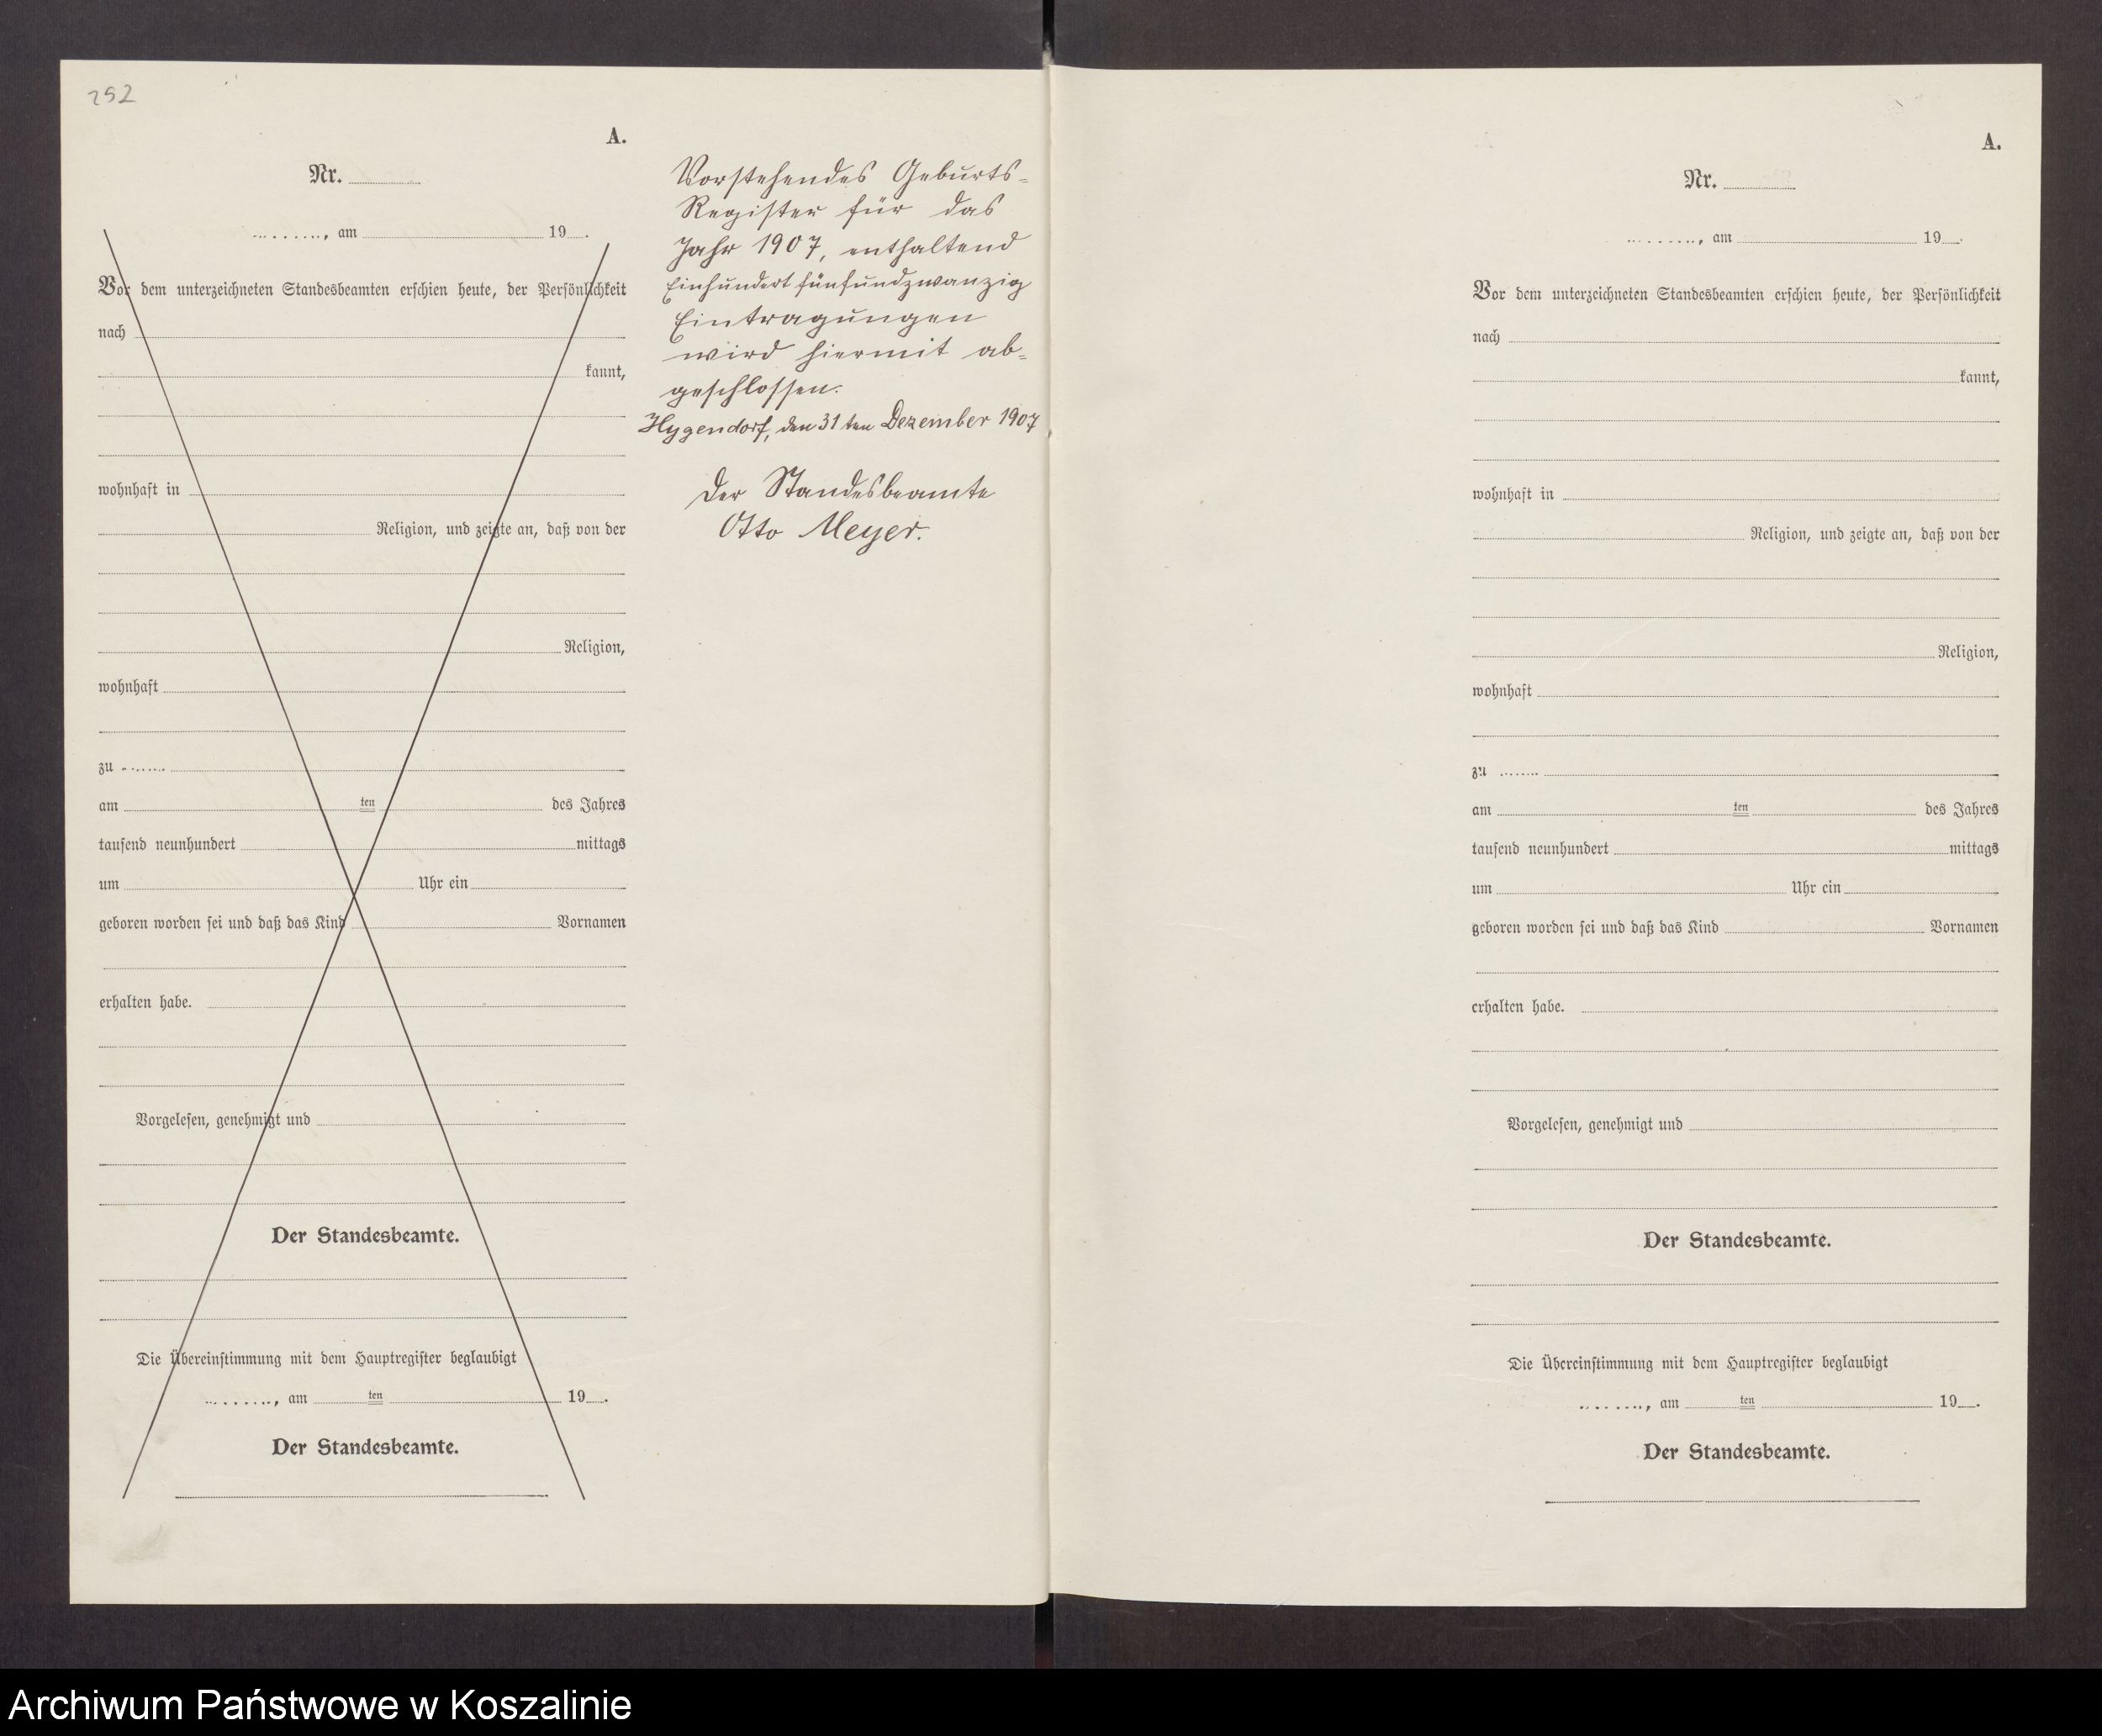 252
A.
Nr.
, am 19 .
Vor dem unterzeichneten Standesbeamten erschien heute, der Persönlichkeit
nach
kannt,
wohnhaft in
Religion, und zeigte an, daß von der
Religion,
wohnhaft
zu
am ten des Jahres
tausend neunhundert mittags
um Uhr ein
geboren worden sei und daß das Kind Vornamen
erhalten habe.
Vorgelesen, genehmigt und
Der Standesbeamte.
Die Übereinstimmung mit dem Hauptregister beglaubigt
, am ten 19 .
Der Standesbeamte.
Vorstehendes Geburts-
Register für das
Jahr 1907, enthaltend
Einhundert fünfundzwanzig
Eintragungen
wird hiermit ab-
geschlossen.
den 31 ten Dezember 1907
Der Standesbeamte
Otto Meyer.
A.
Nr.
, am 19 .
Vor dem unterzeichneten Standesbeamten erschien heute, der Persönlichkeit
nach
kannt,
wohnhaft in
Religion, und zeigte an, daß von der
Religion,
wohnhaft
zu
am ten des Jahres
tausend neunhundert mittags
um Uhr ein
geboren worden sei und daß das Kind Vornamen
erhalten habe.
Vorgelesen, genehmigt und
Der Standesbeamte.
Die Übereinstimmung mit dem Hauptregister beglaubigt
, am ten 19 .
Der Standesbeamte.
Archiwum Państwowe w Koszalinie